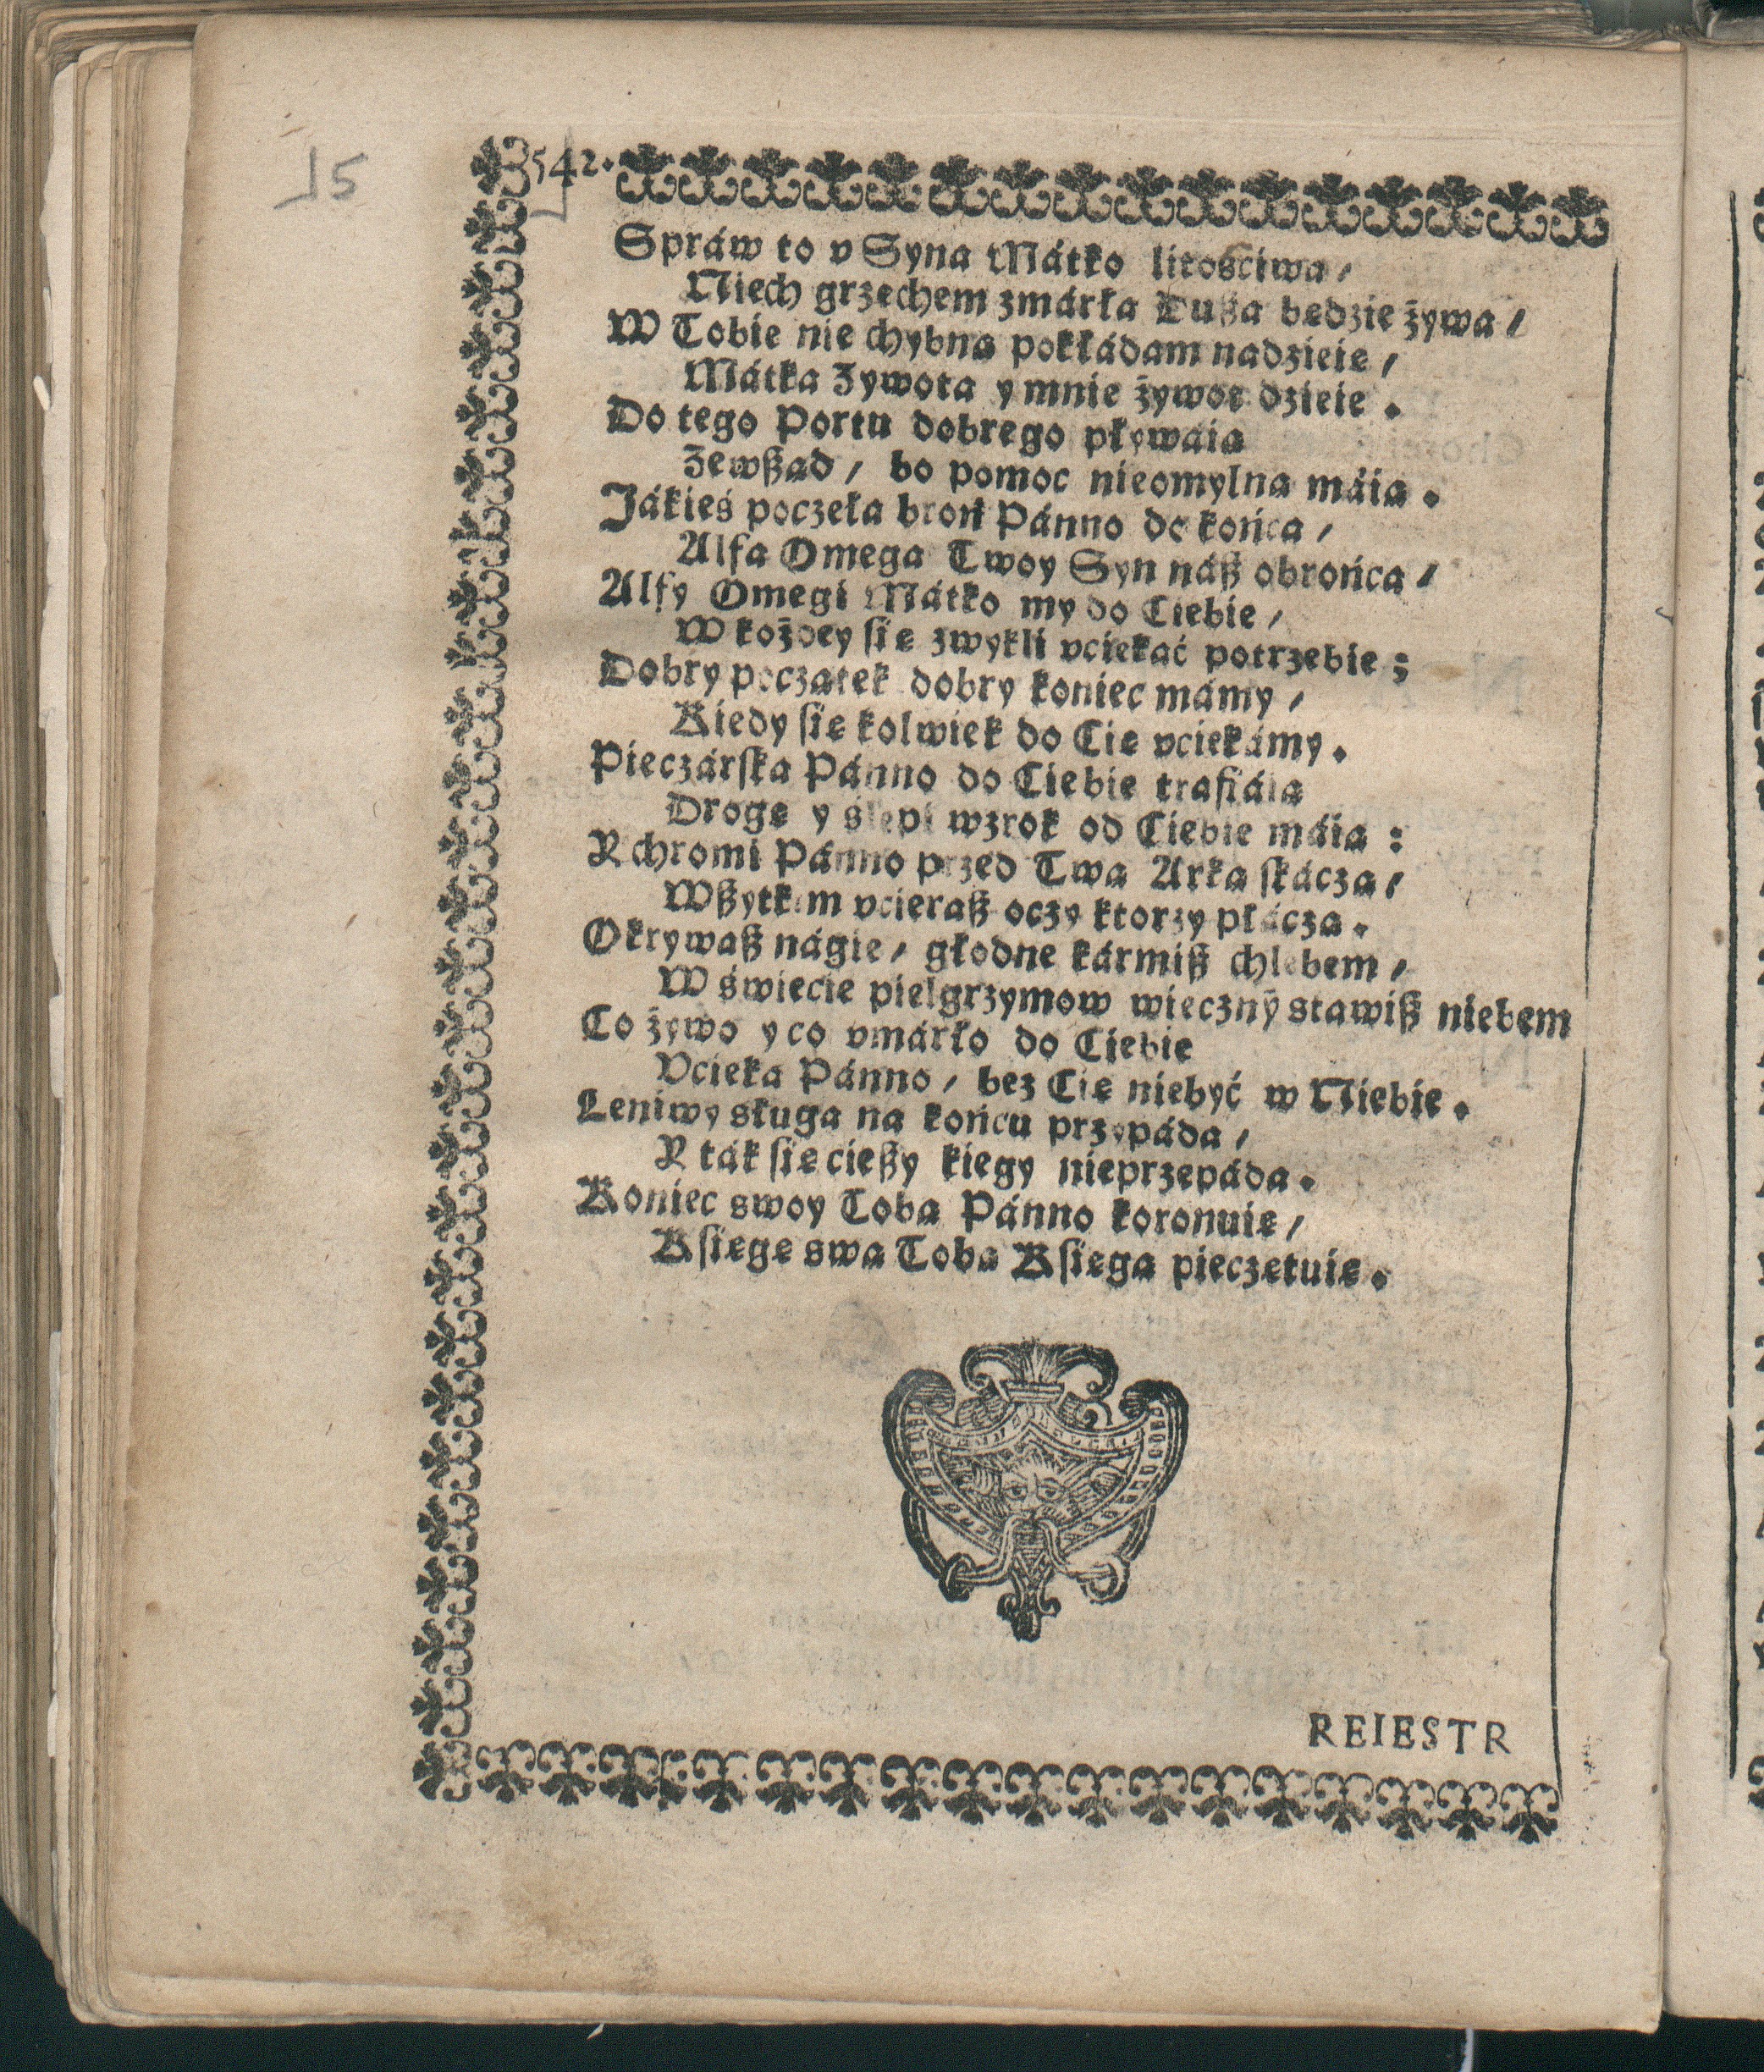 542.
Spráw to v Syna Mátko litościwa,
Niech grzechem zmárła Dußa będzie żywa,
W Tobie nie chybną pokłádam nádzieię,
Mátka Zywota y mnie żywot dzieie.
Do tego Portu dobrego pływáią
Zewßąd, bo pomoc nieomylną máią.
Jákieś poczęła broń Pánno do końca,
Alfa Omega Twoy Syn náß obrońca,
Alfy Omegi Mátko my do Ciebie,
W kożdey się zwykli vciekáć potrzebie;
Dobry początek dobry koniec mámy,
Kiedy się kolwiek do Cię vciekámy.
Pieczárſka Pánno do Ciebie trafiáią
Drogę y ślepi wzrok od Ciebie máią:
Y chromi Pánno przed Twą Arką ſkáczą,
Wßytkim vcieraß oczy ktorzy płáczą.
Okrywaß nágie, głodne kármiß chlebem,
W świecie pielgrzymow wieczny̅ stawiß niebem
Co żywo y co vmárło do Ciebie
Vcieka Pánno, bez Cię niebyć w Niebie.
Leniwy sługa na końcu przypáda,
Y ták się cießy kiegy nieprzepáda.
Koniec swoy Tobą Pánno koronuie,
Kſięgę swą Tobą Kſięgą pieczętuie.
REIESTR
15